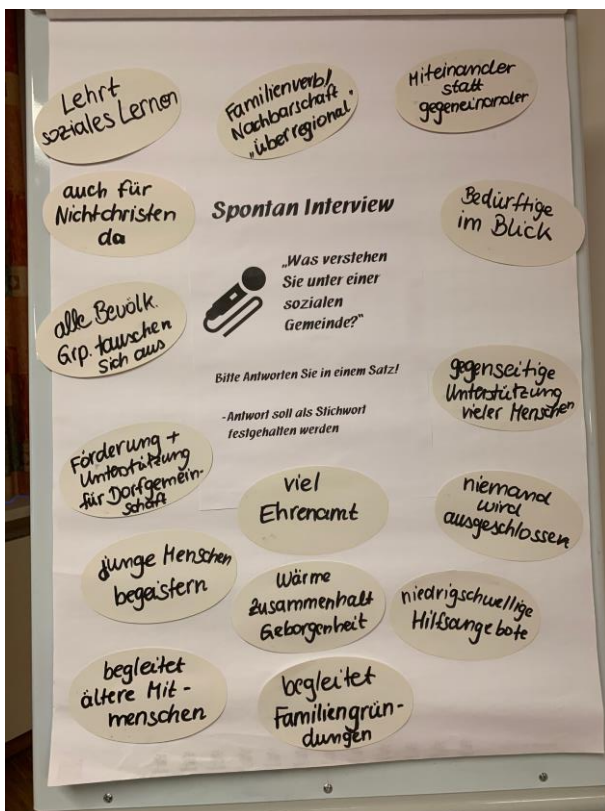 Lehrt
soziales Lernen
Familienverb/
Nachbarschaft
"überregional"
Miteinander
statt
gegeneinander
auch für
Nichtchristen
da
Spontan Interview
Bedürftige
im Blick
„Was verstehen
Sie unter einer
sozialen
Gemeinde?“
alle Bevölk.
Grp. tauschen
sich aus
Bitte Antworten Sie in einem Satz!
-Antwort soll als Stichwort
festgehalten werden
gegenseitige
Unterstützung
vieler Menschen
Förderung +
Unterstützung
für Dorfgemein-
schaft
viel
Ehrenamt
niemand
wird
ausgeschlossen
junge Menschen
begeistern
Wärme
Zusammenhalt
Geborgenheit
niedrigschwellige
Hilfsangebote
begleitet
ältere Mit-
menschen
begleitet
Familiengrün-
dungen